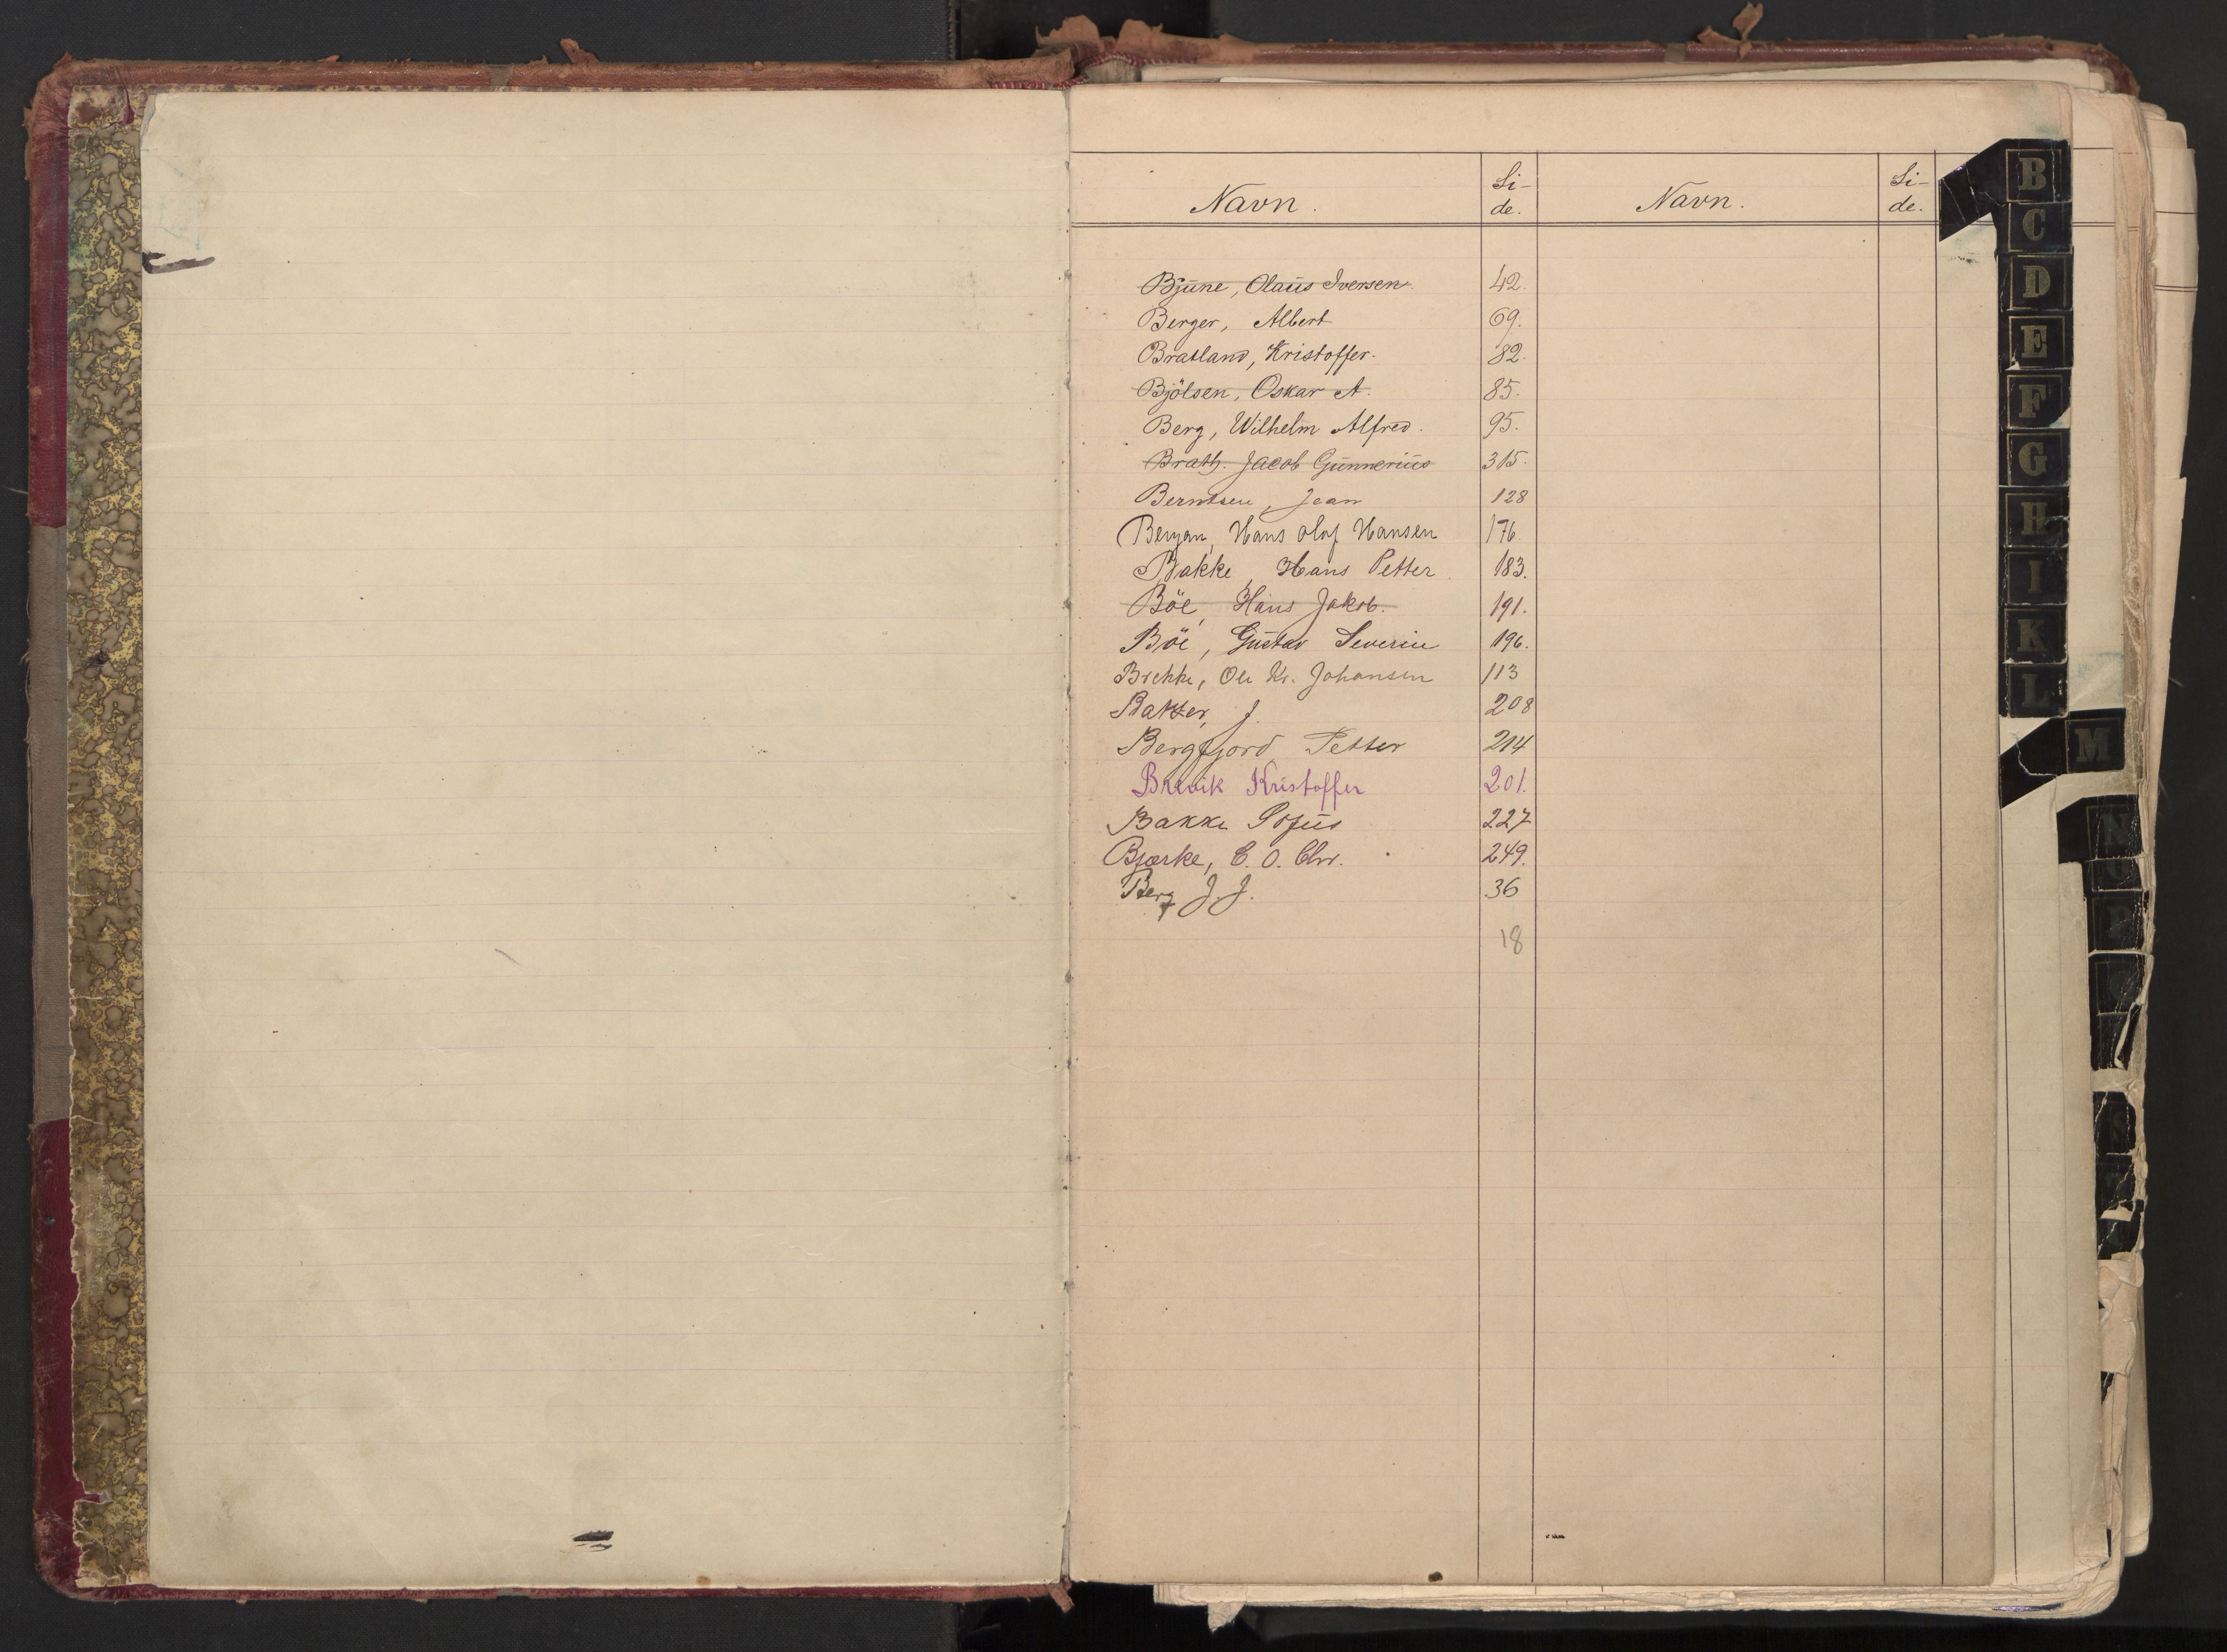 Navn. Si-de. Navn. Si-de.
Bjune, Olaus Iversen. 42.
Berger, Albert 69.
Bratland, Kristoffer. 82.
Bjölsen, Oskar A. 85.
Berg, Wilhelm Alfred. 95.
Brath. Jacob Gunnerius 315.
Berntsen, Jean 128
Bergan, Hans Olaf Hansen 176.
Bakke, Hans Petter. 183.
Böe, Hans Jakob. 191.
Böe, Gustav Severin 196.
Brekke, Ole Kr. Johansen 113
J. 208
Bergfjord Petter 214
Brevik Kristoffer 201.
Bakke Sofus 227
Bjerke, C. O. Chr. 249.
Berg J. J. 36
18
B
C
D
E
F
G
H
I
K
L
M
N
O
P
S